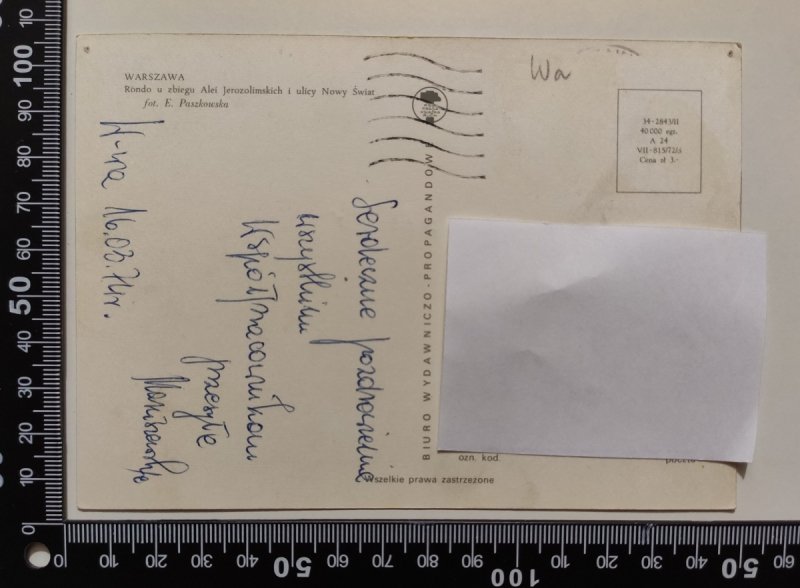 WARSZAWA
Rondo u zbiegu Alei Jerozolimskich i ulicy Nowy Świat
fot. E. Paszkowska
Wa
34-2843/II
40 000 egz.
A 24
VII-815/72/s
Cena zł 3.-
W-wa 16.03.74r.
Serdeczne pozdrowienia
wszystkim
Współpracownikom
przesyła
BIURO WYDAWNICZO-PROPAGANDOWE
ozn. kod.
poczta
Wszelkie prawa zastrzeżone
110
100
90
80
70
60
50
40
30
20
10
0
0
10
20
30
40
50
60
70
80
90
100
10
20
30
40
50
60